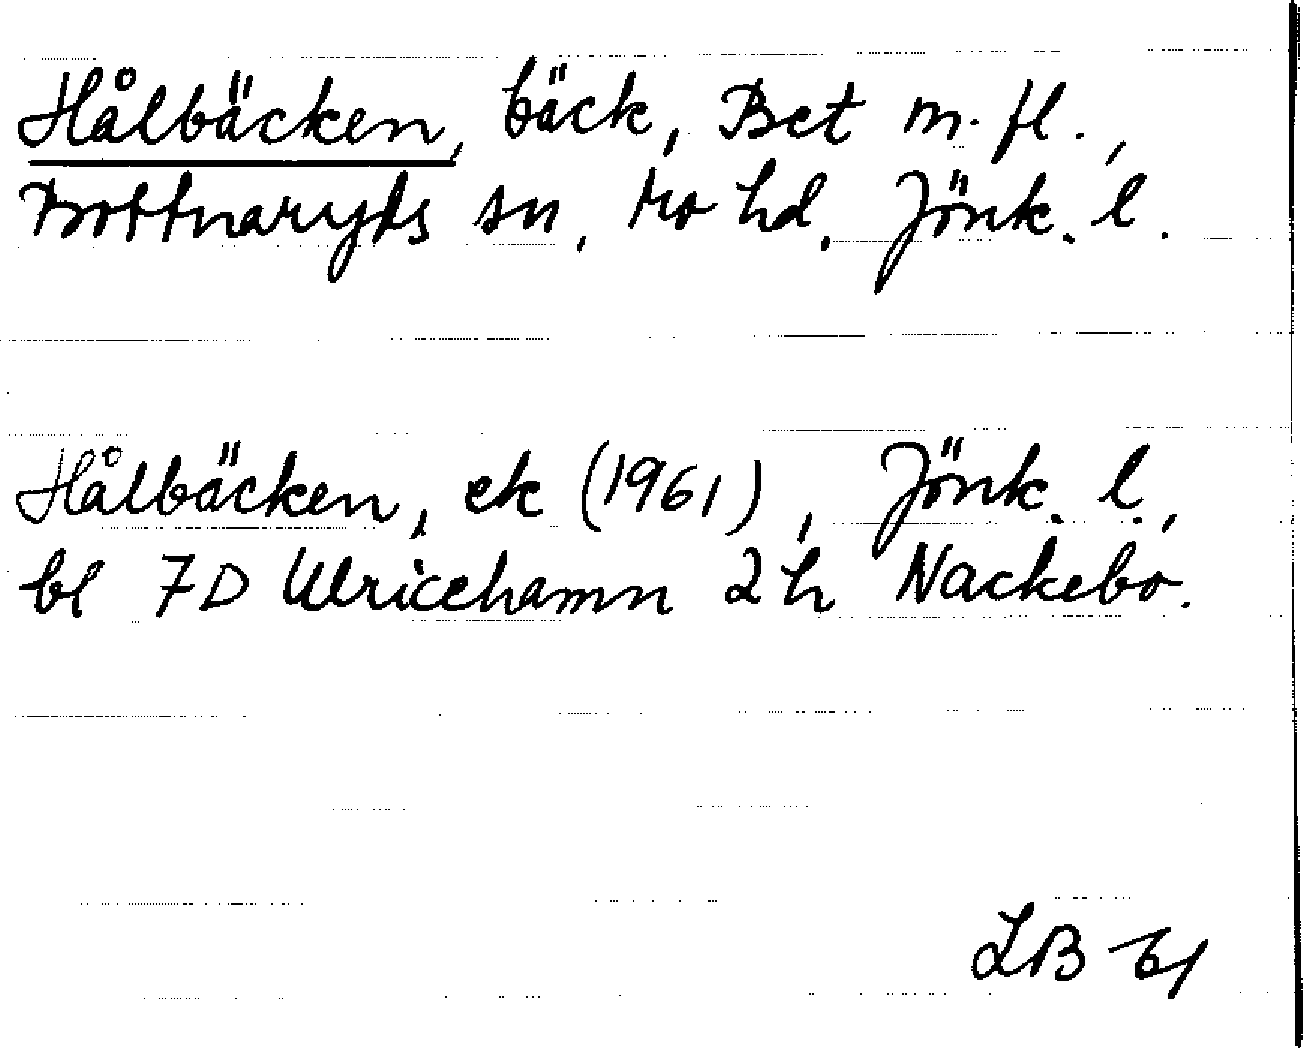 Hålbäcken, bäck, Bet m. fl.,
Bottnaryds sn, Mo hd, Jönk. l.
Hålbäcken, ek (1961), Jönk. l.,
bl 7D Ulricehamn 2h Nackebo.
LB 61